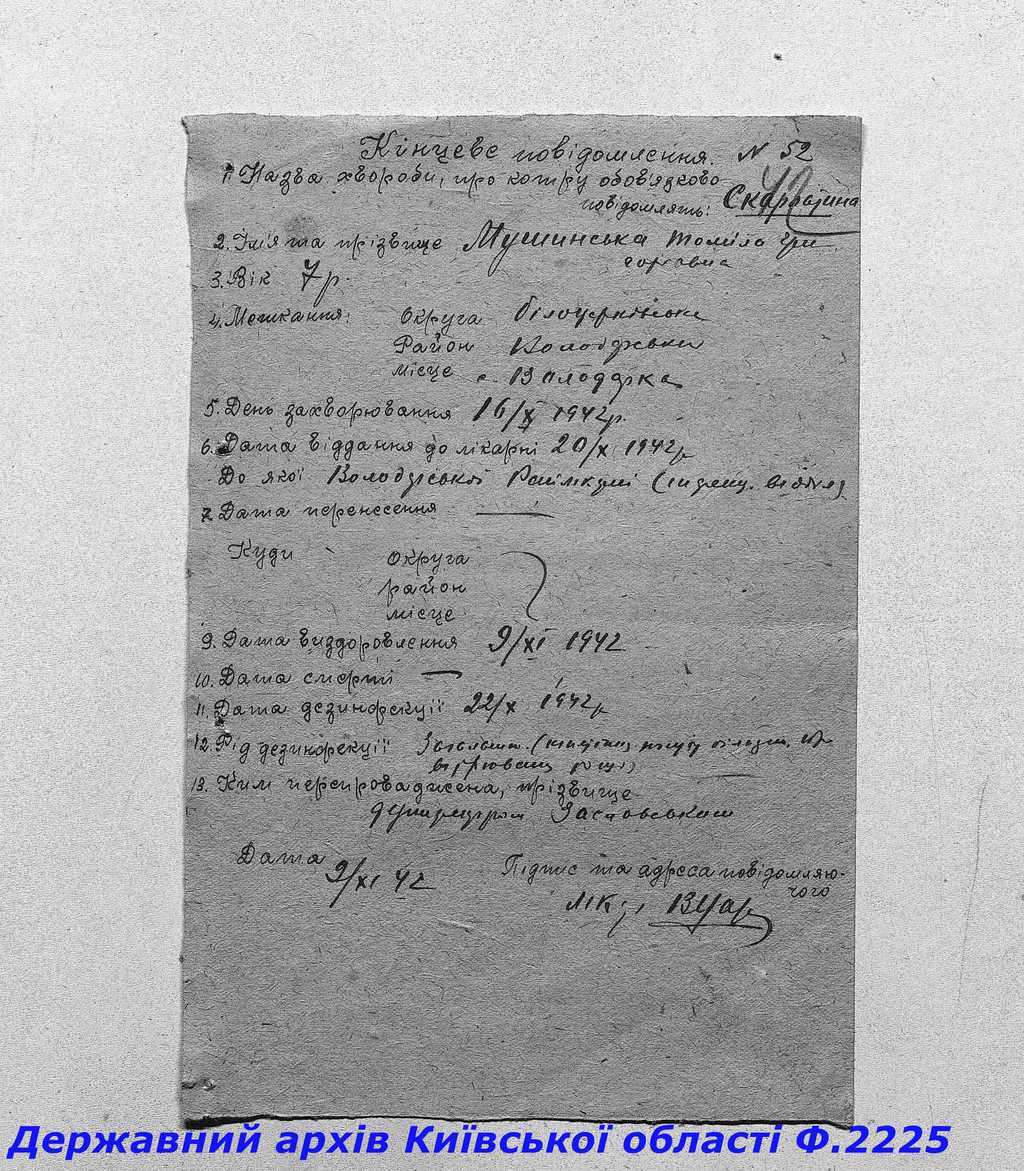 Кінцеве повідомлення. N 52
1. Назва хвороби, про котру обов'язково
повідомлять: Скарлатина
2. Ім'я та прізвище Мушинська
3. Вік 7 р.
4. Мешкання: Округа білоцерківська
Район Володарський
місце с. Володарка
5. День захворювання 16/X 1942р.
6. Дата віддання до лікарні 20/X 1942р
До якої Володарської
7. Дата перенесення —
Куди Округа
район
місце
9. Дата виздоровлення 9/XI 1942
10. Дата смерти —
11. Дата дезинфекції 22/X 1942р
12. Рід дезинфекції
13. Ким перепровадисена, прізвище
Дата
9/XI 42
Підпис та адреса повідомляю-
чого
Лік.
Державний архів Київської області Ф.2225